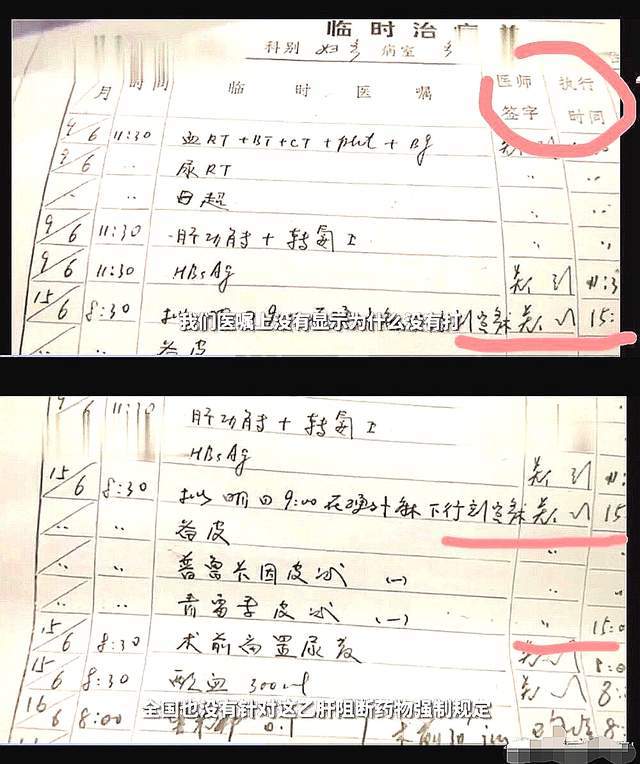 临时治疗单
科别 妇产 病室 产
月 时间 临时医嘱 医师签字 执行时间
9/6 11:30 血RT+BT+CT+plut+Bg
9/6 〃 尿RT 〃 〃
B超 〃
9/6 11:30 肝功能+转氨I 〃
9/6 11:30 HBsAg 11:3
15/6 8:30 拟明日9:00在硬外麻下行剖宫术 15:
我们医嘱上没有显示为什么没有打
〃 〃 备皮
9/ 11:30 肝功能+转氨I
HBsAg
15/6 8:30 拟明日9:00在硬外麻下行剖宫术 15
〃 〃 备皮
〃 〃 普鲁卡因皮试 (一)
〃 〃 青霉素皮试 (一) 〃 15:0
15/6 8:30 术前留置尿管 8:0
15/6 8:30 配血 300ml 8:
全国也没有针对这乙肝阻断药物强制规定
16/6 8:00 0.1 术前30 im 8: